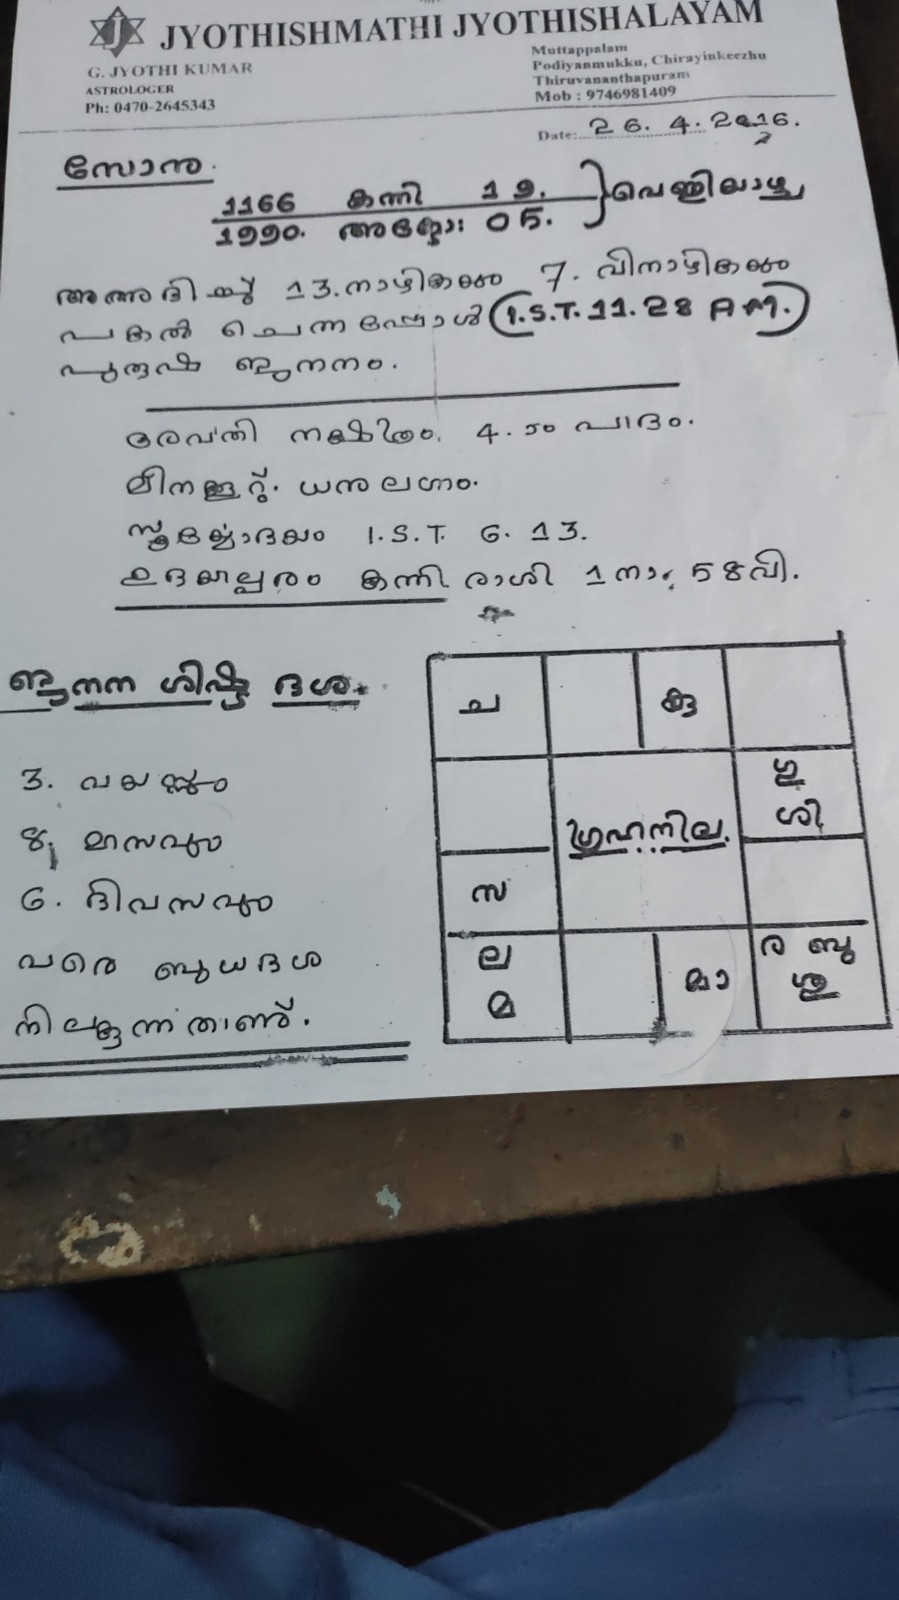 JYOTHISHMATHI JYOTHISHALAYAM
G. JYOTHI KUMAR
ASTROLOGER
Ph: 0470-2645343
Muttappalam
Podiyanmukku, Chirayinkeezhu
Thiruvananthapuram
Mob : 9746981409
Date: 26. 4. 2016.
സോനു.
1166 കന്നി 19.
1990. ഒക്ടോ: 05.
വെള്ളിയാഴ്ച
അന്നുദിച്ച് 13. നാഴികയും 7. വിനാഴികയും
പകൽ ചെന്നപ്പോൾ (I.S.T. 11.28 AM.)
പുരുഷ ജനനം.
രേവതി നക്ഷത്രം. 4.ാം പാദം.
മീനക്കൂറ്. ധനു ലഗ്നം.
സൂര്യോദയം I.S.T. 6. 13.
ഉദയാല്പരം കന്നി രാശി 1 നാ, 58 വി.
ജനന ശിഷ്ട ദശ.
3. വയസ്സും
8, മാസവും
6. ദിവസവും
വരെ ബുധദശ
നില്ക്കുന്നതാണ്.
ച
കു
ഗു
ശി
ഗ്രഹനില.
സ
ല
മ
മാ
ര ബു
ശു